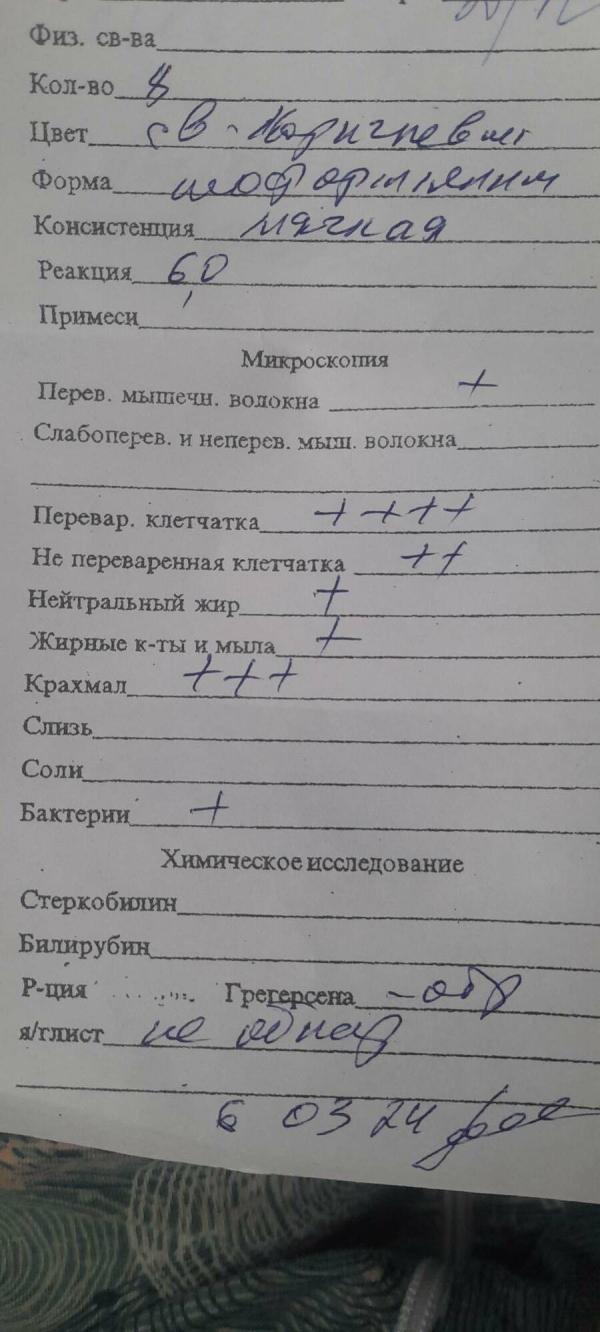 Физ. св-ва
Кол-во
Цвет св-коричневый
Форма
Консистенция мягкая
Реакция 6,0
Примеси
Микроскопия
Перев. мышечн. волокна +
Слабоперев. и неперев. мыш. волокна
Перевар. клетчатка ++++
Не переваренная клетчатка ++
Нейтральный жир +
Жирные к-ты и мыла +
Крахмал +++
Слизь
Соли
Бактерии +
Химическое исследование
Стеркобилин
Билирубин
Р-ция Грегерсена - отр
я/глист не обнар
6 03 24